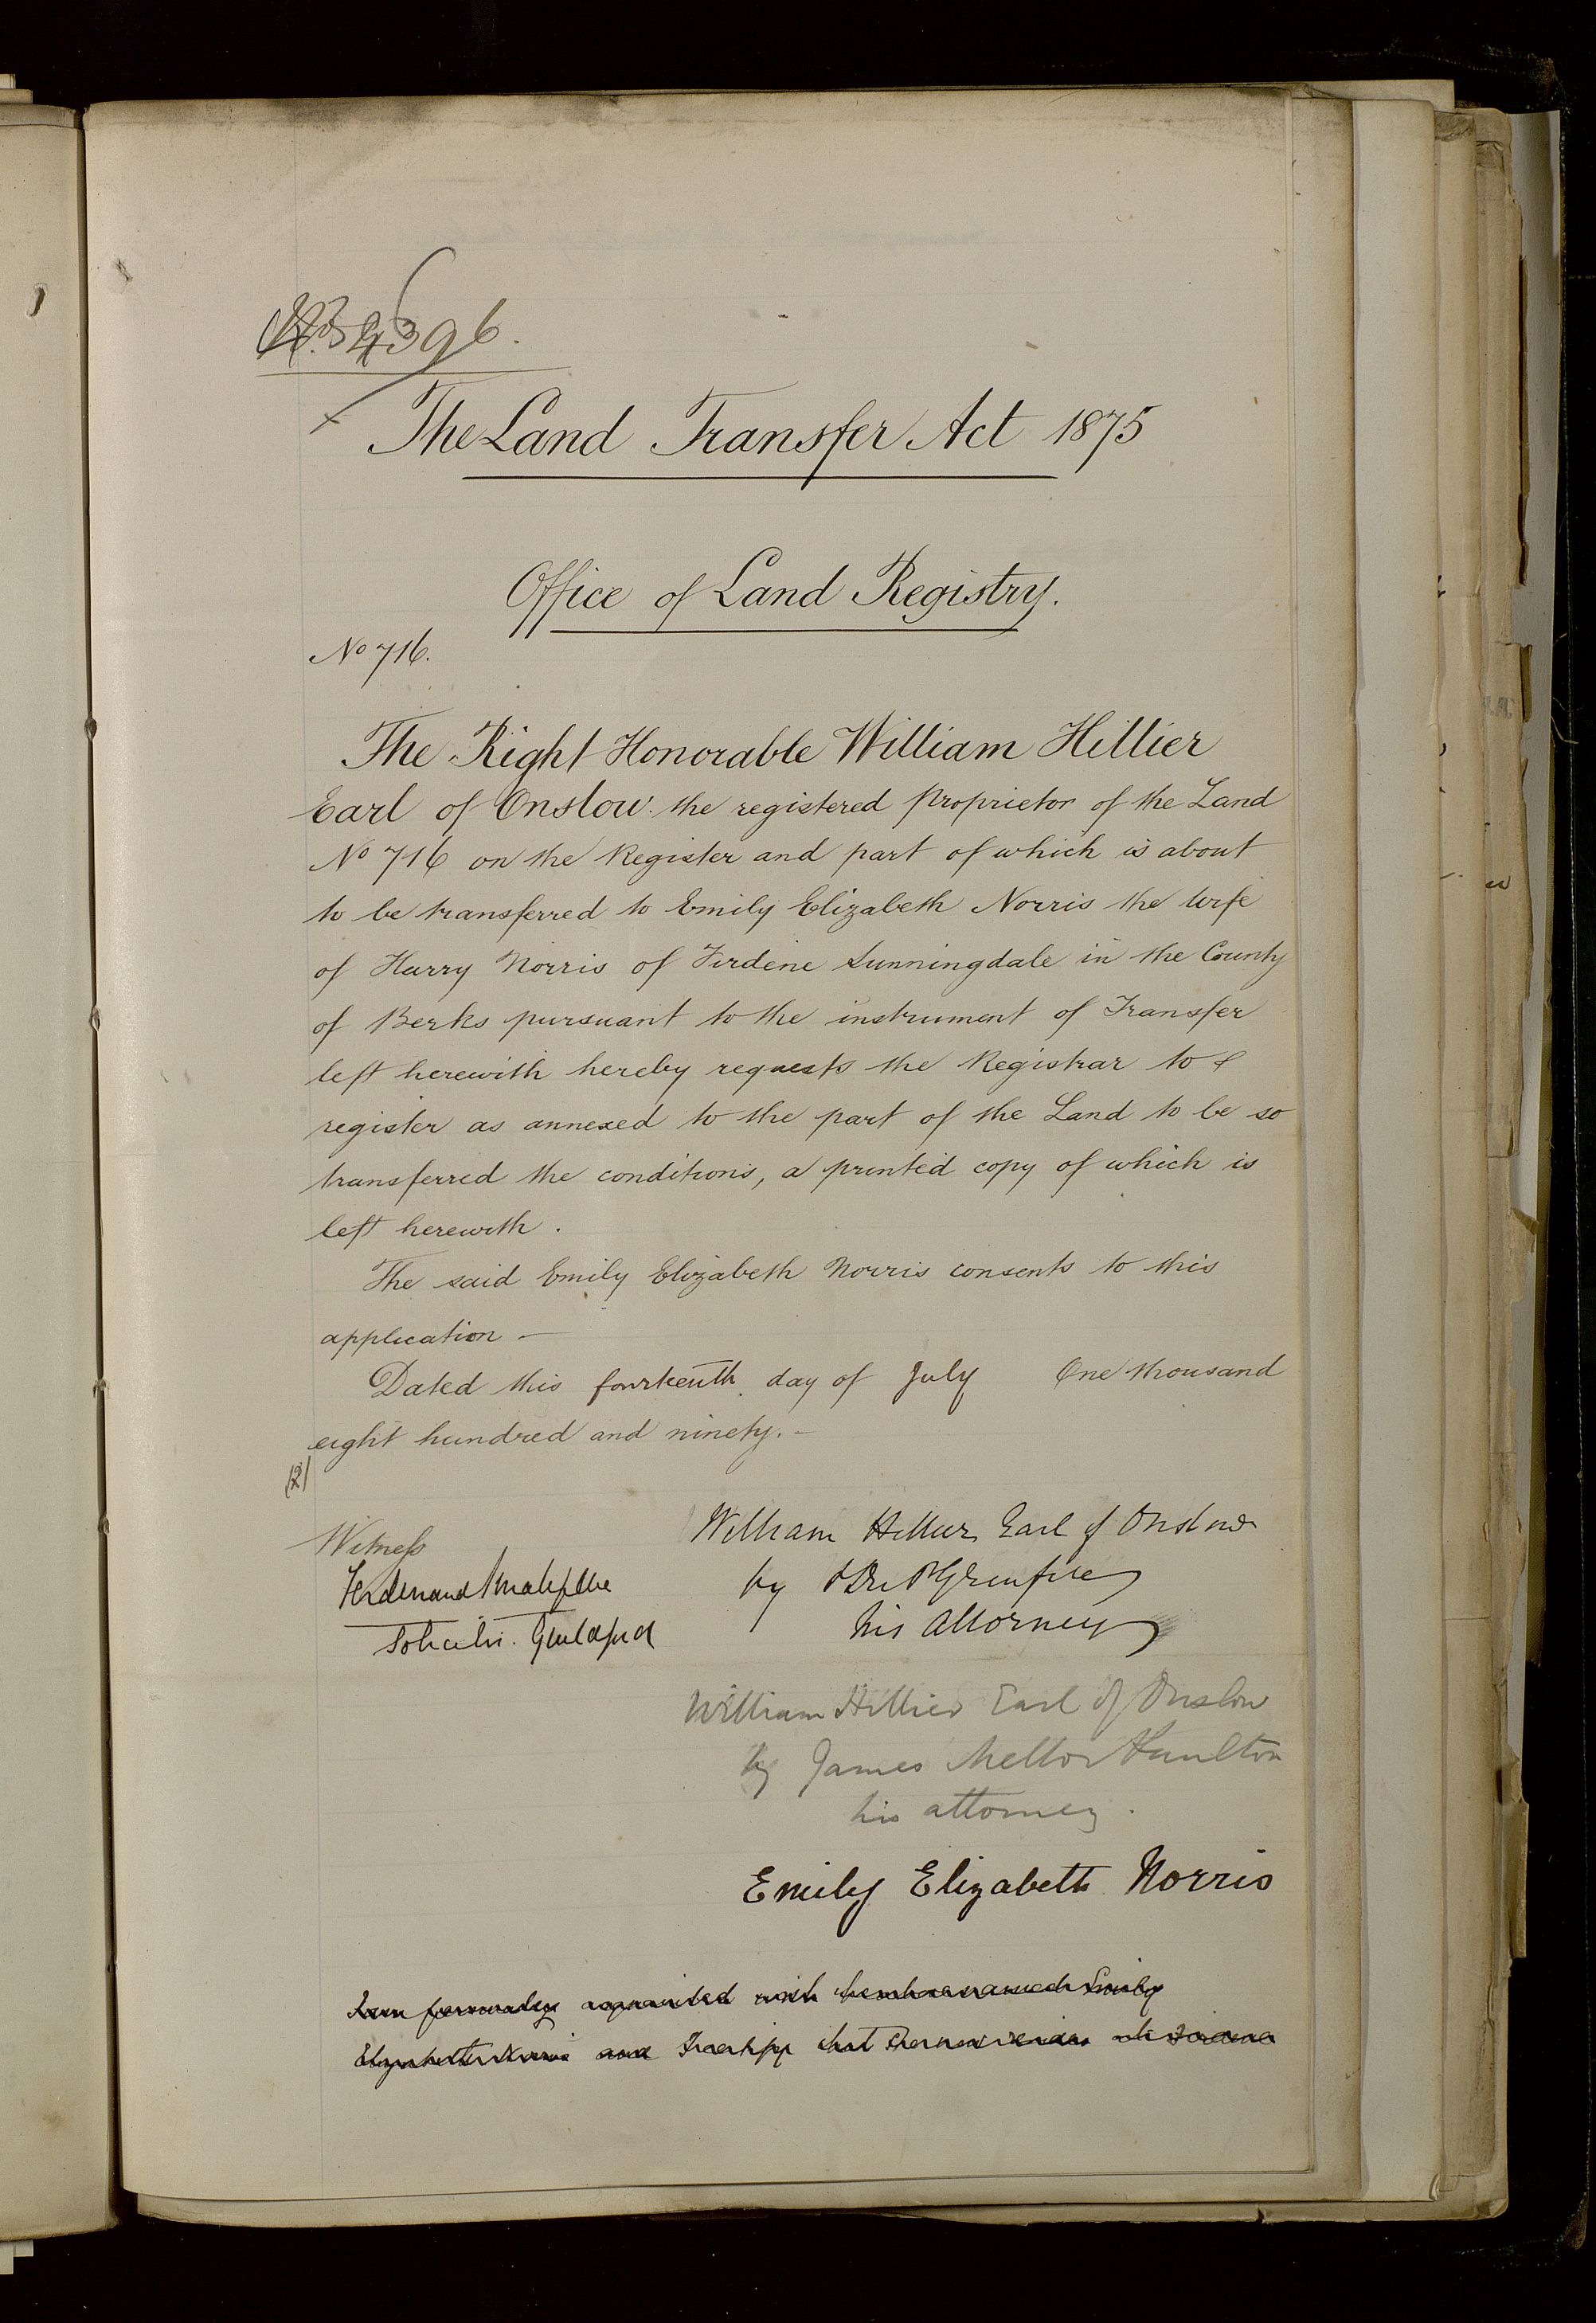 4396.
The Land Transfer Act 1875
Office of Land Registry.
No 716.
The Right Honorable William Hillier
Earl of Onslow the registered proprietor of the Land
No 716 on the Register and part of which is about
to be transferred to Emily Elizabeth Norris the wife
of Harry Norris of Firdene Sunningdale in the County
of Berks pursuant to the instrument of Transfer
left herewith hereby requests the Registrar to
register as annexed to the part of the Land to be so
transferred the conditions, a printed copy of which is
left herewith.
The said Emily Elizabeth Norris consents to this
application —
Dated this fourteenth day of July One thousand
eight hundred and ninety. —
(2)
Witness
Ferdinand Smallpeice
Solicitor. Guildford
William Hillier Earl of Onslow
by
his Attorney
William Hillier Earl of Onslow
by James Mellor
his attorney.
Emily Elizabeth Norris
I am personally acquainted with the above named Emily
Elizabeth Norris and I certify that she resides at Firdene